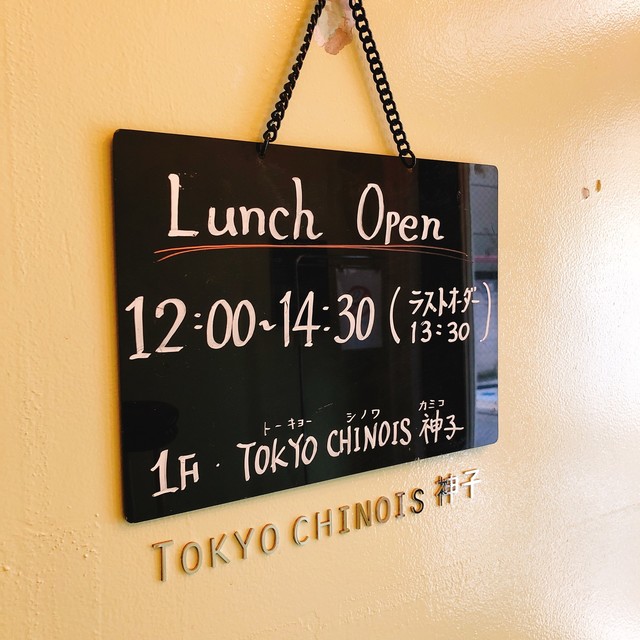 Lunch Open
12:00~14:30 (ラストオーダー 13:30)
トーキョー シノワ カミコ
1F・TOKYO CHINOIS 神子
TOKYO CHINOIS 神子